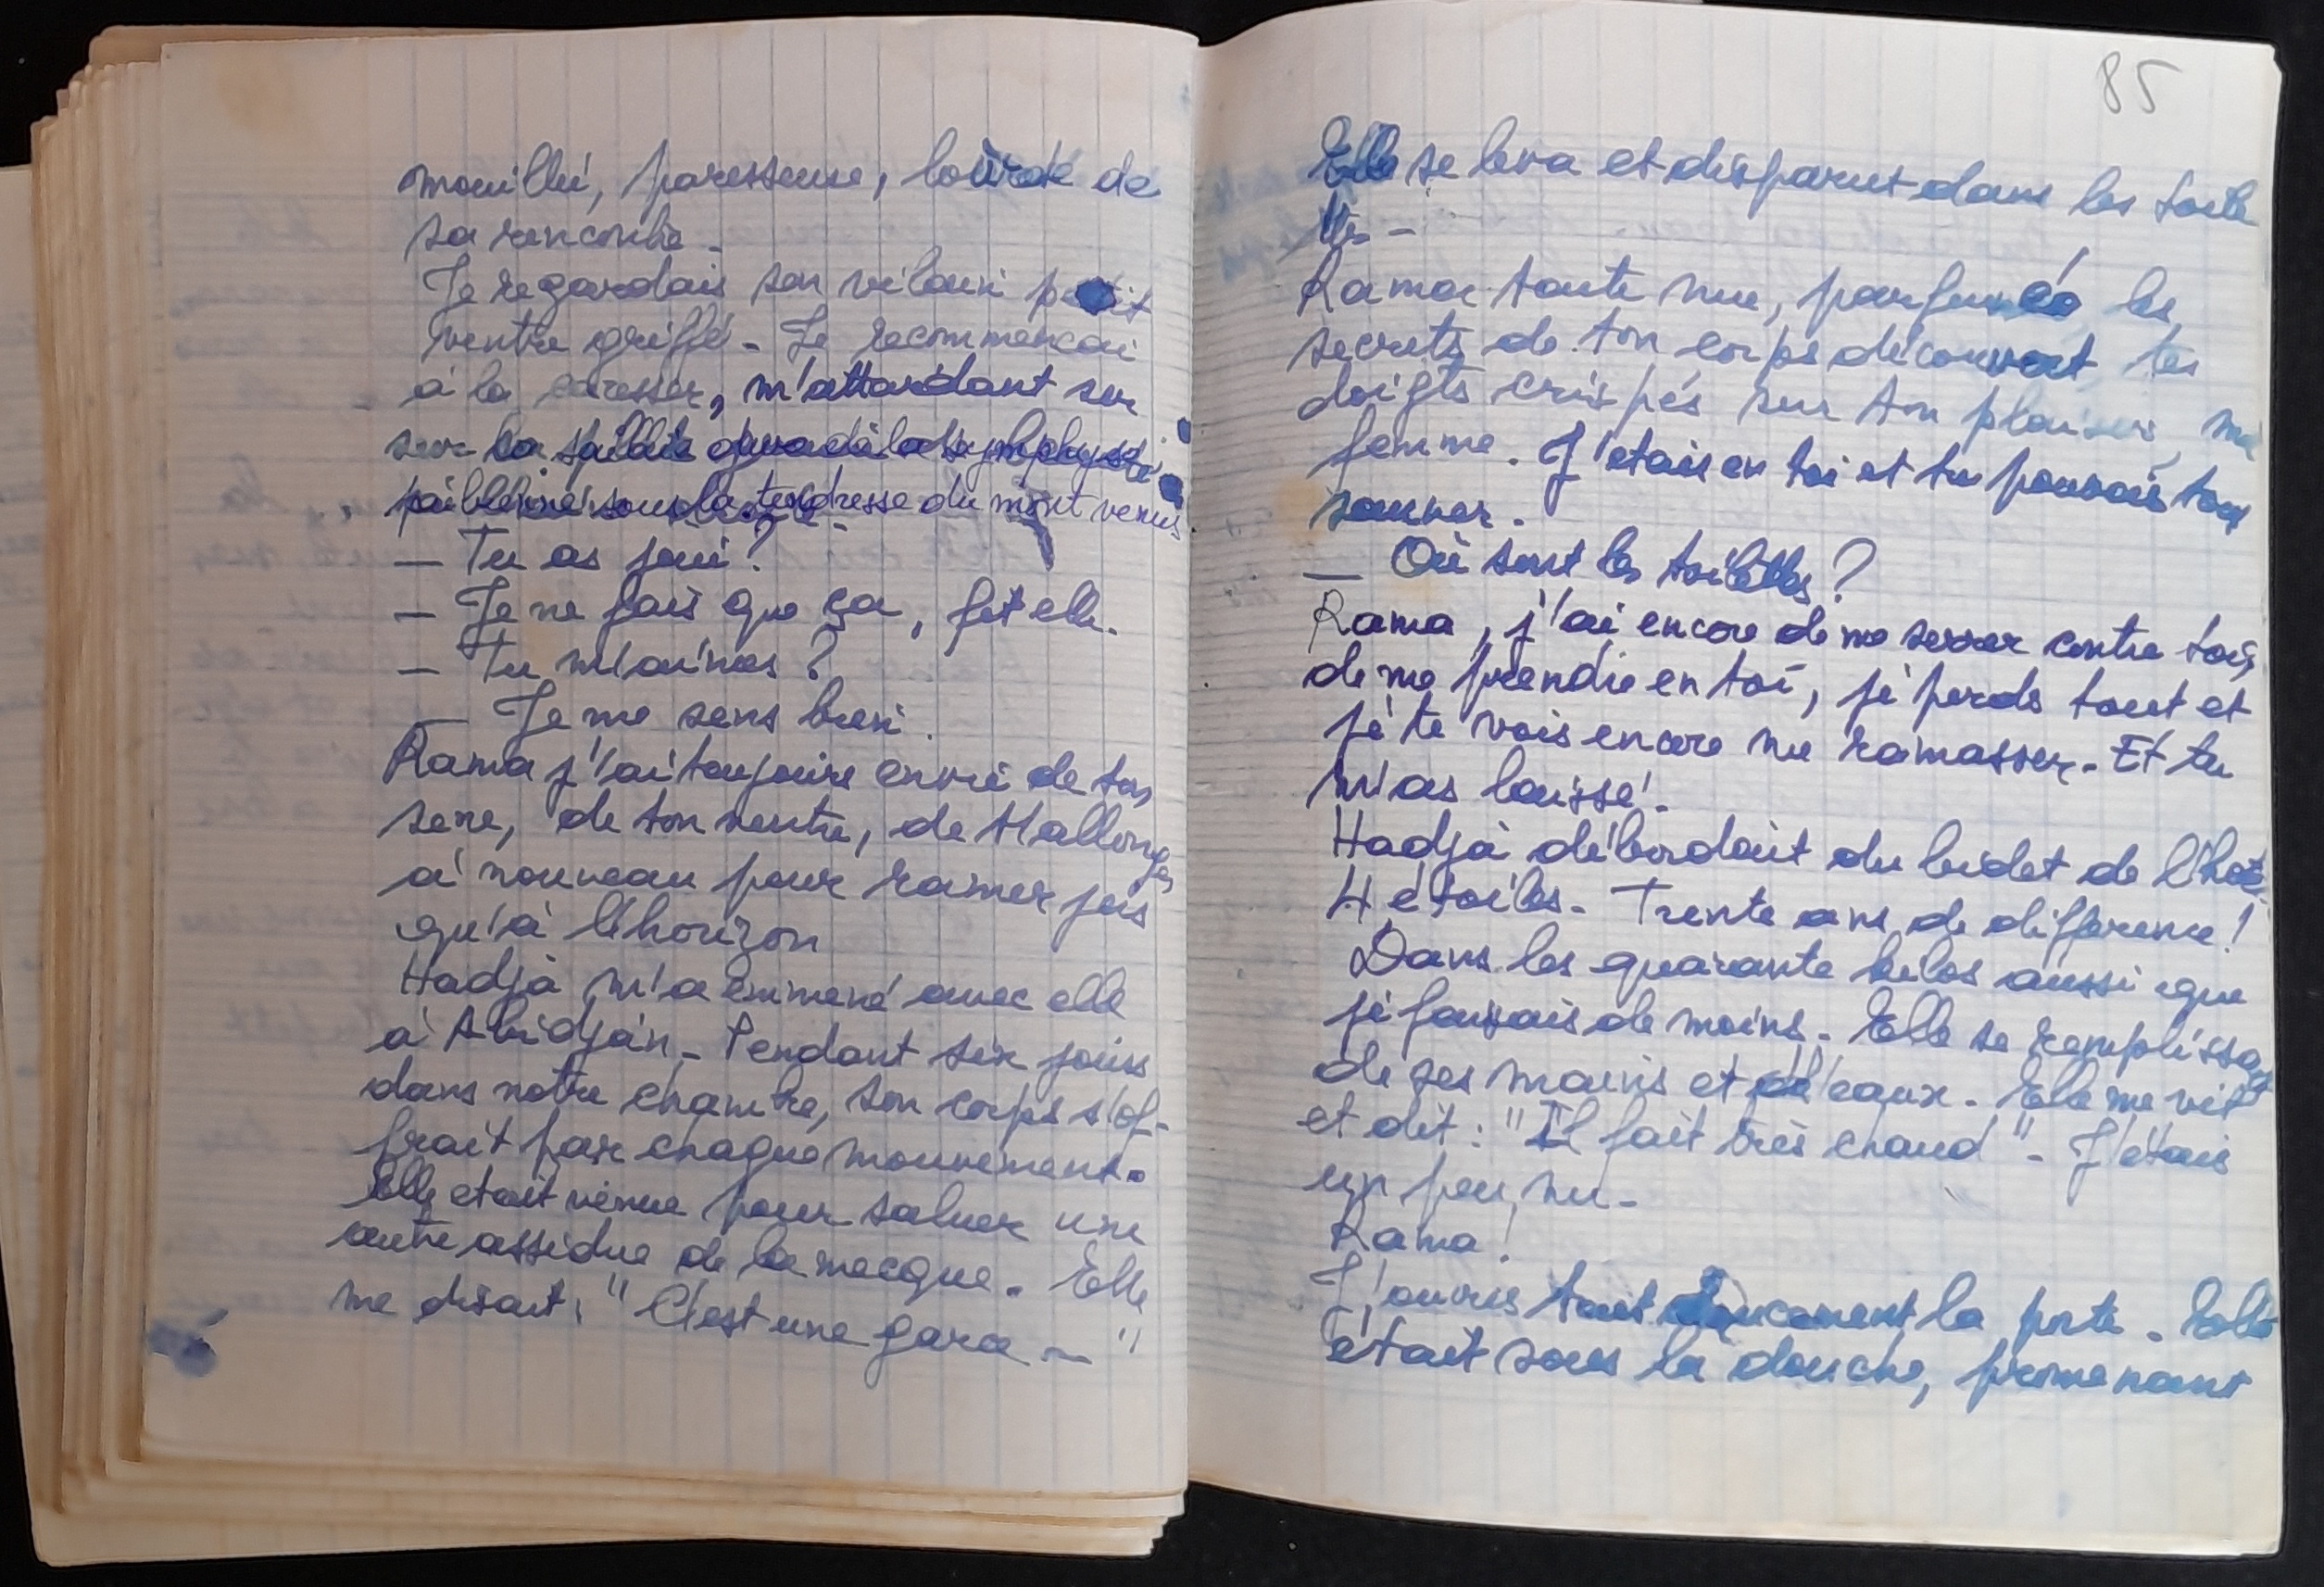 mouillé, paresseuse, lourde de
sa rencontre.
Je regardais son vilain petit
ventre griffé - Je recommencai
à la caresser, m'attardant sur
sur la saillie
sous la tendresse du mont venus
— Tu as joui ?
— Je ne fais que ça, fit elle.
— Tu m'aimes ?
— Je me sens bien.
Rama j'ai toujours envie de ton
sexe, de ton ventre, de t'allonger
à nouveau pour ramer jus
qu'à l'horizon
Hadja m'a emmené avec elle
à Abidjan - Pendant six jours
dans notre chambre, son corps s'of-
frait par chaque mouvement.
Elle etait venue pour saluer une
autre assidue de la mecque. Elle
me disait : "C'est une garce — "
85
Elle se leva et disparut dans les toile
ttes -
Rama toute nue, parfumée les
secrets de ton corps découvert, tes
doigts crispés sur ton plaisir, ma
femme. J'etais en toi et tu pouvais tout
sauver.
— Où sont les toilettes ?
Rama, j'ai encore de me serrer contre toi,
de me prendre en toi, je perds tout et
je te vois encore me ramasser. Et tu
m'as laissé.
Hadja débordait du bidet de l'hotel
4 étoiles - Trente ans de difference !
Dans les quarante kilos aussi que
je faisais de moins. Elle se remplissait
de ses mains et d'eaux. Elle me vit
et dit : "Il fait très chaud" - J'étais
un peu nu -
Rama !
J'ouvris tout doucement la porte. Elle
était sous la douche, promenant